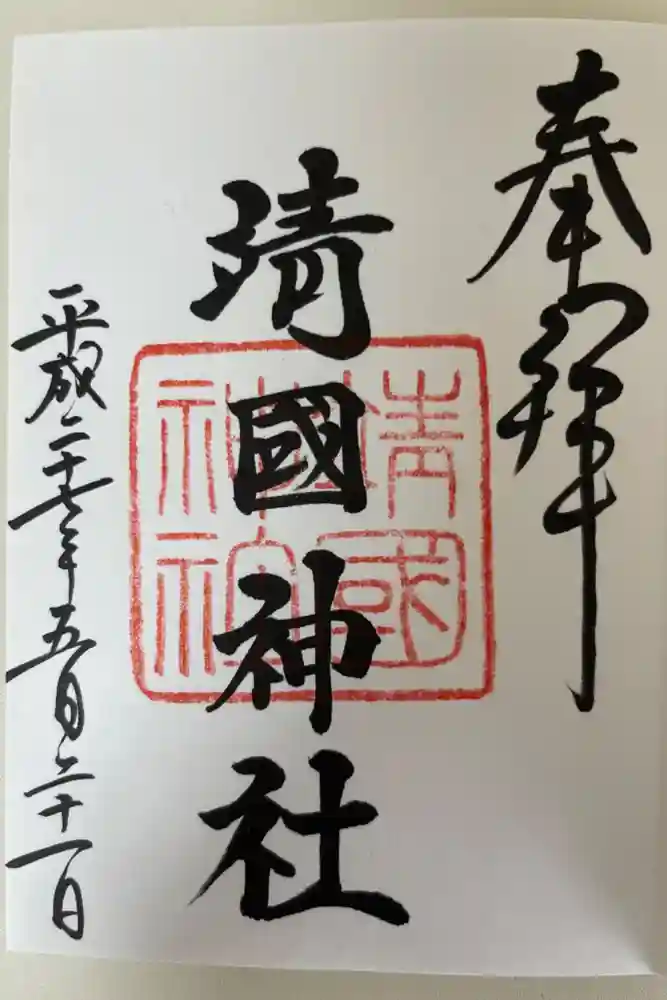 奉拝
靖國神社
靖國
神社
平成二十七年五月二十一日